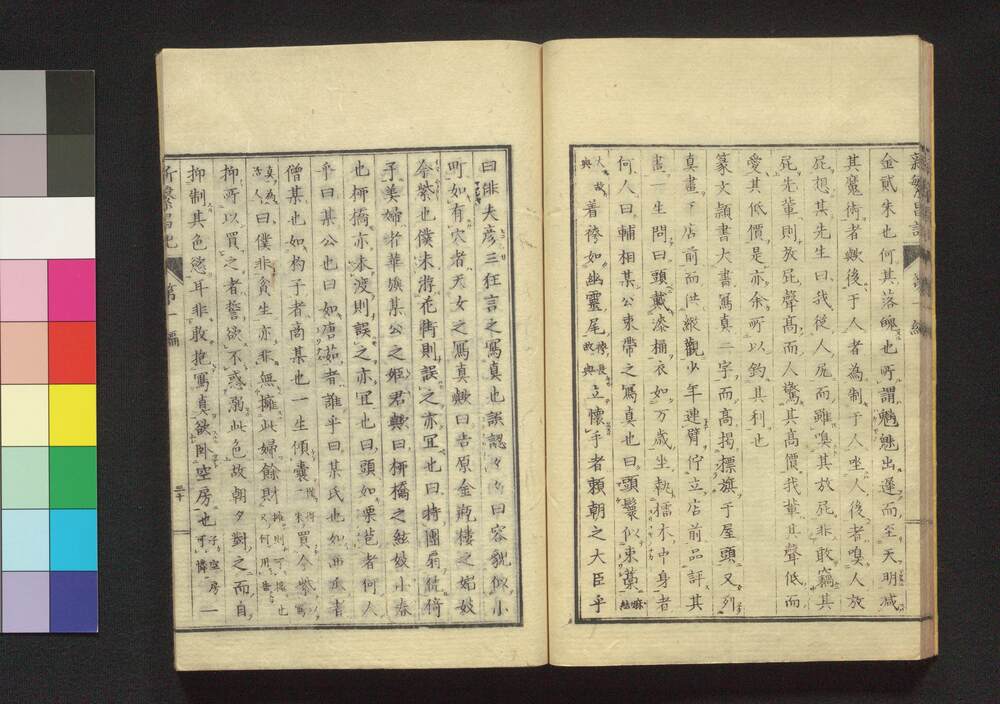 新繁昌記 第一編
金貳朱也何其落魄也所謂魑魅出遲而至天明減
其魔術者歟後于人者為制于人坐人後者嗅人放
屁想其先生曰我從人後而雖嗅其放屁非敢竊其
屁先輩則放屁聲高而人驚其高價我輩其聲低而
愛其低價是亦余所以釣其利也
篆文隷書大書寫真二字而高揭標旗于屋頭又列
真畫于店前而供縱觀少年連臂佇立店前品評其
畫一生問曰頭戴漆桶衣如万歲坐執擂木中身者
何人曰輔相某公束帶之寫真也曰頭鬟似束藁 麻結
着袴如幽靈尾 立懷手者賴朝之大臣乎
曰俳夫彥三狂言之寫真也誤認々々曰容貌似小
町如有穴者天女之寫真歟曰吉原金瓶樓之娼妓
今紫也僕未將花街則誤之亦宜也曰持團扇而倚
子美婦者華族某公之姬君歟曰柳橋之絃妓小春
也柳橋亦未渡則誤之亦宜也曰頭如栗芭者何人
乎曰某公也曰如唐茄者誰乎曰某氏也如西瓜者
僧某也如杓子者商某也一生傾囊 買今紫寫
真 曰僕非貪生亦非無擁此婦餘財
抑所以買之者誓欲不惑溺此色故朝夕對之而自
抑制其色慾耳非敢抱寫真欲臥空房也 一
新繁昌記 第一編 三十